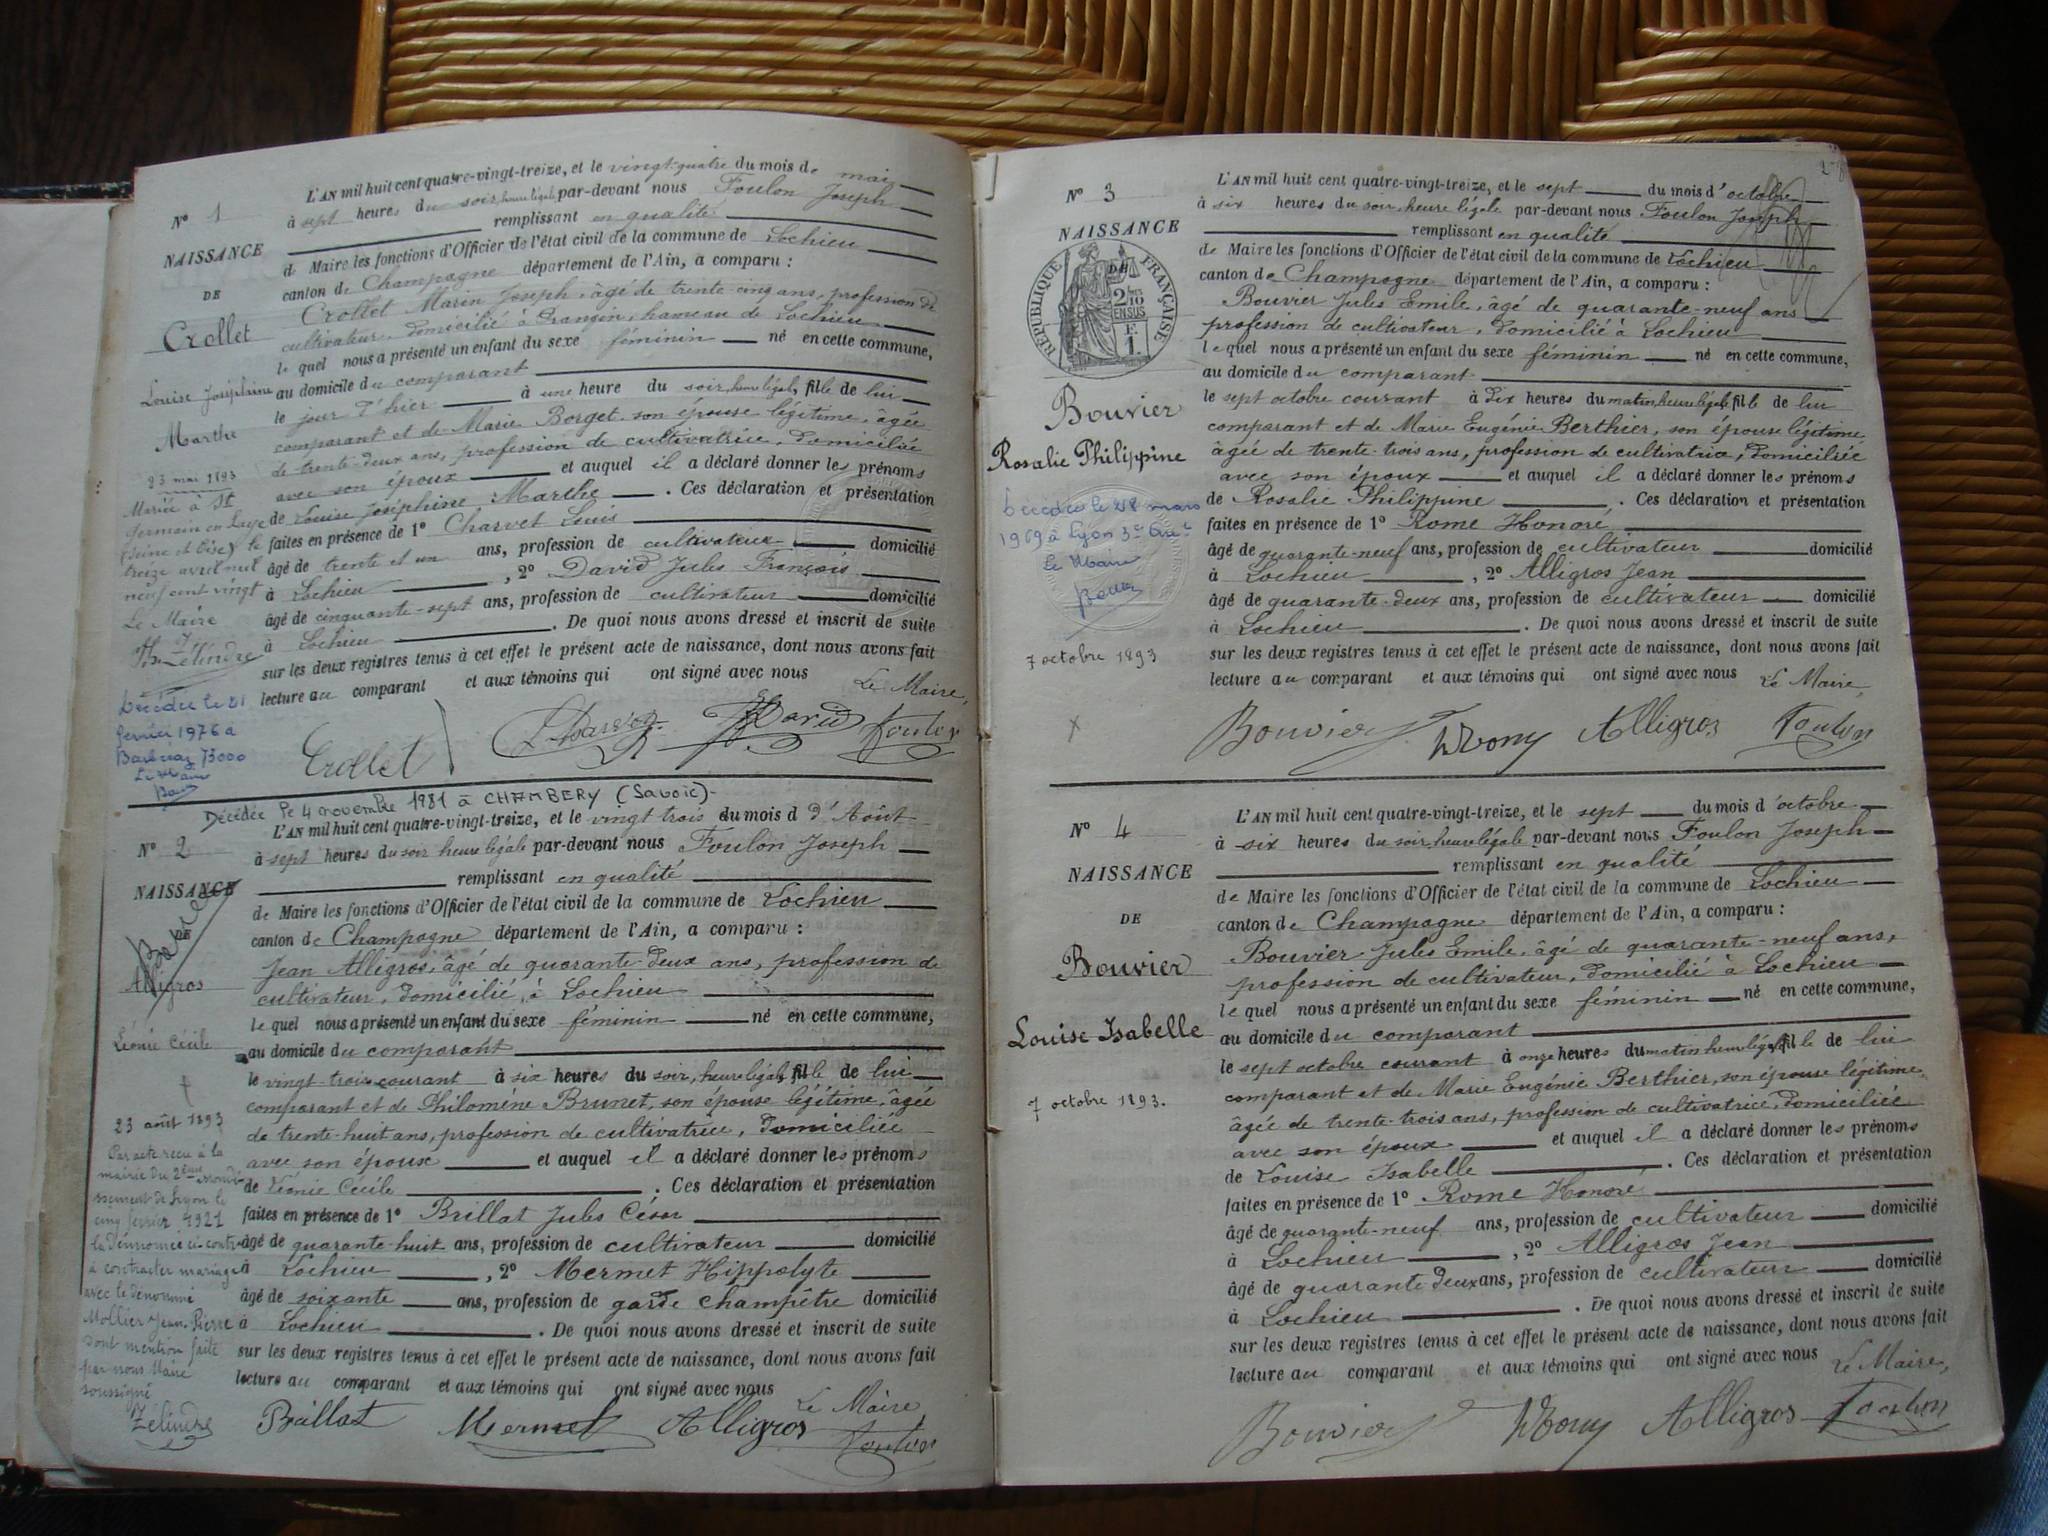 L'AN mil huit cent quatre-vingt-treize, et le vingt-quatre du mois de mai
N° 1
à sept heures du soir, heure légale par-devant nous Foulon Joseph
remplissant en qualité
NAISSANCE
de Maire les fonctions d'Officier de l'état civil de la commune de Lochieu
DE
canton de Champagne département de l'Ain, a comparu :
Crollet Marin Joseph, âgé de trente-cinq ans, profession de
Crollet
cultivateur, domicilié à Prangin, hameau de Lochieu
le quel nous a présenté un enfant du sexe féminin né en cette commune,
Louise Joséphine
au domicile du comparant
Marthe
le jour d'hier à une heure du soir, heure légale, fille de lui
comparant et de Marie Borget son épouse légitime, âgée
de trente-deux ans, profession de cultivatrice, domiciliée
avec son époux et auquel il a déclaré donner les prénoms
de Louise Joséphine Marthe . Ces déclaration et présentation
faites en présence de 1° Charvet Louis
âgé de trente et un ans, profession de cultivateur domicilié
à Lochieu , 2° David Jules François
âgé de cinquante-sept ans, profession de cultivateur domicilié
à Lochieu . De quoi nous avons dressé et inscrit de suite
sur les deux registres tenus à cet effet le présent acte de naissance, dont nous avons fait
lecture au comparant et aux témoins qui ont signé avec nous
Le Maire,
23 mai 1893
Mariée à St
Germain en Laye
(Seine et Oise) le
treize avril mil
neuf cent vingt
Le Maire
Zélindre
Décédée le 21
février 1976 à
Barberaz 73000
Le Maire
Crollet David Foulon
Décédée le 4 novembre 1981 à CHAMBERY (Savoie)-
L'AN mil huit cent quatre-vingt-treize, et le vingt trois du mois d d'Août
N° 2
à sept heures du soir heure légale par-devant nous Foulon Joseph
remplissant en qualité
NAISSANCE
de Maire les fonctions d'Officier de l'état civil de la commune de Lochieu
DE
canton de Champagne département de l'Ain, a comparu :
Alligros
Jean Alligros, âgé de quarante-deux ans, profession de
cultivateur, domicilié, à Lochieu
le quel nous a présenté un enfant du sexe féminin né en cette commune,
Léonie Cécile
au domicile du comparant
le vingt-trois courant à six heures du soir, heure légale, fille de lui
comparant et de Philomène Brunet, son épouse légitime, âgée
de trente huit ans, profession de cultivatrice, domiciliée
avec son épouse et auquel il a déclaré donner les prénoms
de Léonie Cécile . Ces déclaration et présentation
faites en présence de 1° Brillat Jules César
âgé de quarante-huit ans, profession de cultivateur domicilié
à Lochieu , 2° Mermet Hippolyte
âgé de soixante ans, profession de garde champêtre domicilié
à Lochieu . De quoi nous avons dressé et inscrit de suite
sur les deux registres tenus à cet effet le présent acte de naissance, dont nous avons fait
lecture au comparant et aux témoins qui ont signé avec nous
Le Maire
23 août 1893
Par acte reçu à la
mairie du 2ème arrondis-
sement de Lyon le
cinq février 1921
la dénommée ci-contre
à contracter mariage
avec le dénommé
Mollier Jean-Pierre
dont mention faite
par nous Maire
soussigné
Zélindre
Brillat Mermet Alligros Foulon
L'AN mil huit cent quatre-vingt-treize, et le sept du mois d'octobre
N° 3
à six heures du soir, heure légale par-devant nous Foulon Joseph
NAISSANCE
remplissant en qualité
de Maire les fonctions d'Officier de l'état civil de la commune de Lochieu
DE
canton de Champagne département de l'Ain, a comparu :
RÉPUBLIQUE FRANÇAISE
2 10
EN SUS
F.
1.
Bouvier Jules Emile, âgé de quarante-neuf ans
profession de cultivateur, domicilié à Lochieu
le quel nous a présenté un enfant du sexe féminin né en cette commune,
au domicile du comparant
Bouvier
le sept octobre courant à dix heures du matin, heure légale, fille de lui
comparant et de Marie Eugénie Berthier, son épouse légitime,
Rosalie Philippine
âgée de trente-trois ans, profession de cultivatrice, domiciliée
avec son époux et auquel il a déclaré donner les prénoms
de Rosalie Philippine . Ces déclaration et présentation
faites en présence de 1° Rome Honoré
âgé de quarante-neuf ans, profession de cultivateur domicilié
à Lochieu , 2° Alligros Jean
âgé de quarante-deux ans, profession de cultivateur domicilié
à Lochieu . De quoi nous avons dressé et inscrit de suite
sur les deux registres tenus à cet effet le présent acte de naissance, dont nous avons fait
lecture au comparant et aux témoins qui ont signé avec nous
Le Maire,
Décédée le 28 mars
1969 à Lyon 3e
Le Maire
7 octobre 1893
Bouvier Alligros Foulon
L'AN mil huit cent quatre-vingt-treize, et le sept du mois d'octobre
N° 4
à six heures du soir, heure légale par-devant nous Foulon Joseph
NAISSANCE
remplissant en qualité
de Maire les fonctions d'Officier de l'état civil de la commune de Lochieu
DE
canton de Champagne département de l'Ain, a comparu :
Bouvier
Bouvier Jules Emile, âgé de quarante-neuf ans,
profession de cultivateur, domicilié à Lochieu
le quel nous a présenté un enfant du sexe féminin né en cette commune,
Louise Isabelle
au domicile du comparant
le sept octobre courant à onze heures du matin heure légale, fille de lui
comparant et de Marie Eugénie Berthier, son épouse légitime,
7 octobre 1893.
âgée de trente-trois ans, profession de cultivatrice, domiciliée
avec son époux et auquel il a déclaré donner les prénoms
de Louise Isabelle . Ces déclaration et présentation
faites en présence de 1° Rome Honoré
âgé de quarante-neuf ans, profession de cultivateur domicilié
à Lochieu , 2° Alligros Jean
âgé de quarante deux ans, profession de cultivateur domicilié
à Lochieu . De quoi nous avons dressé et inscrit de suite
sur les deux registres tenus à cet effet le présent acte de naissance, dont nous avons fait
lecture au comparant et aux témoins qui ont signé avec nous
Le Maire,
Bouvier Alligros Foulon